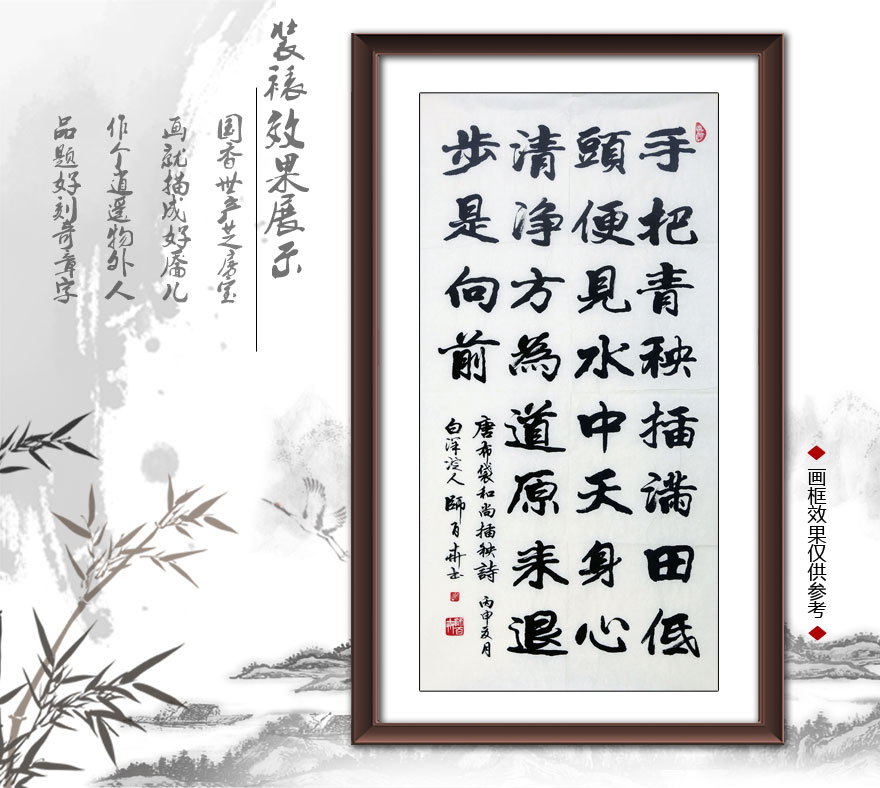 装裱效果展示
国香世产芝房宝
画就描成好靥儿
作个逍遥物外人
品题好刻奇章字
手把青秧插满田低
頭便見水中天身心
清净方為道原来退
步是向前
唐布袋和尚插秧詩 丙申夏月
白洋淀人 師百卉书
画框效果仅供参考